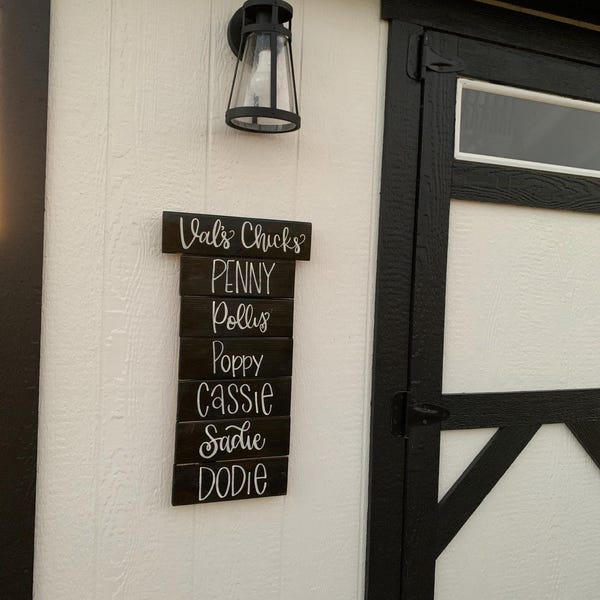 Val's Chicks
PENNY
Polly
Poppy
Cassie
Sadie
DODIE